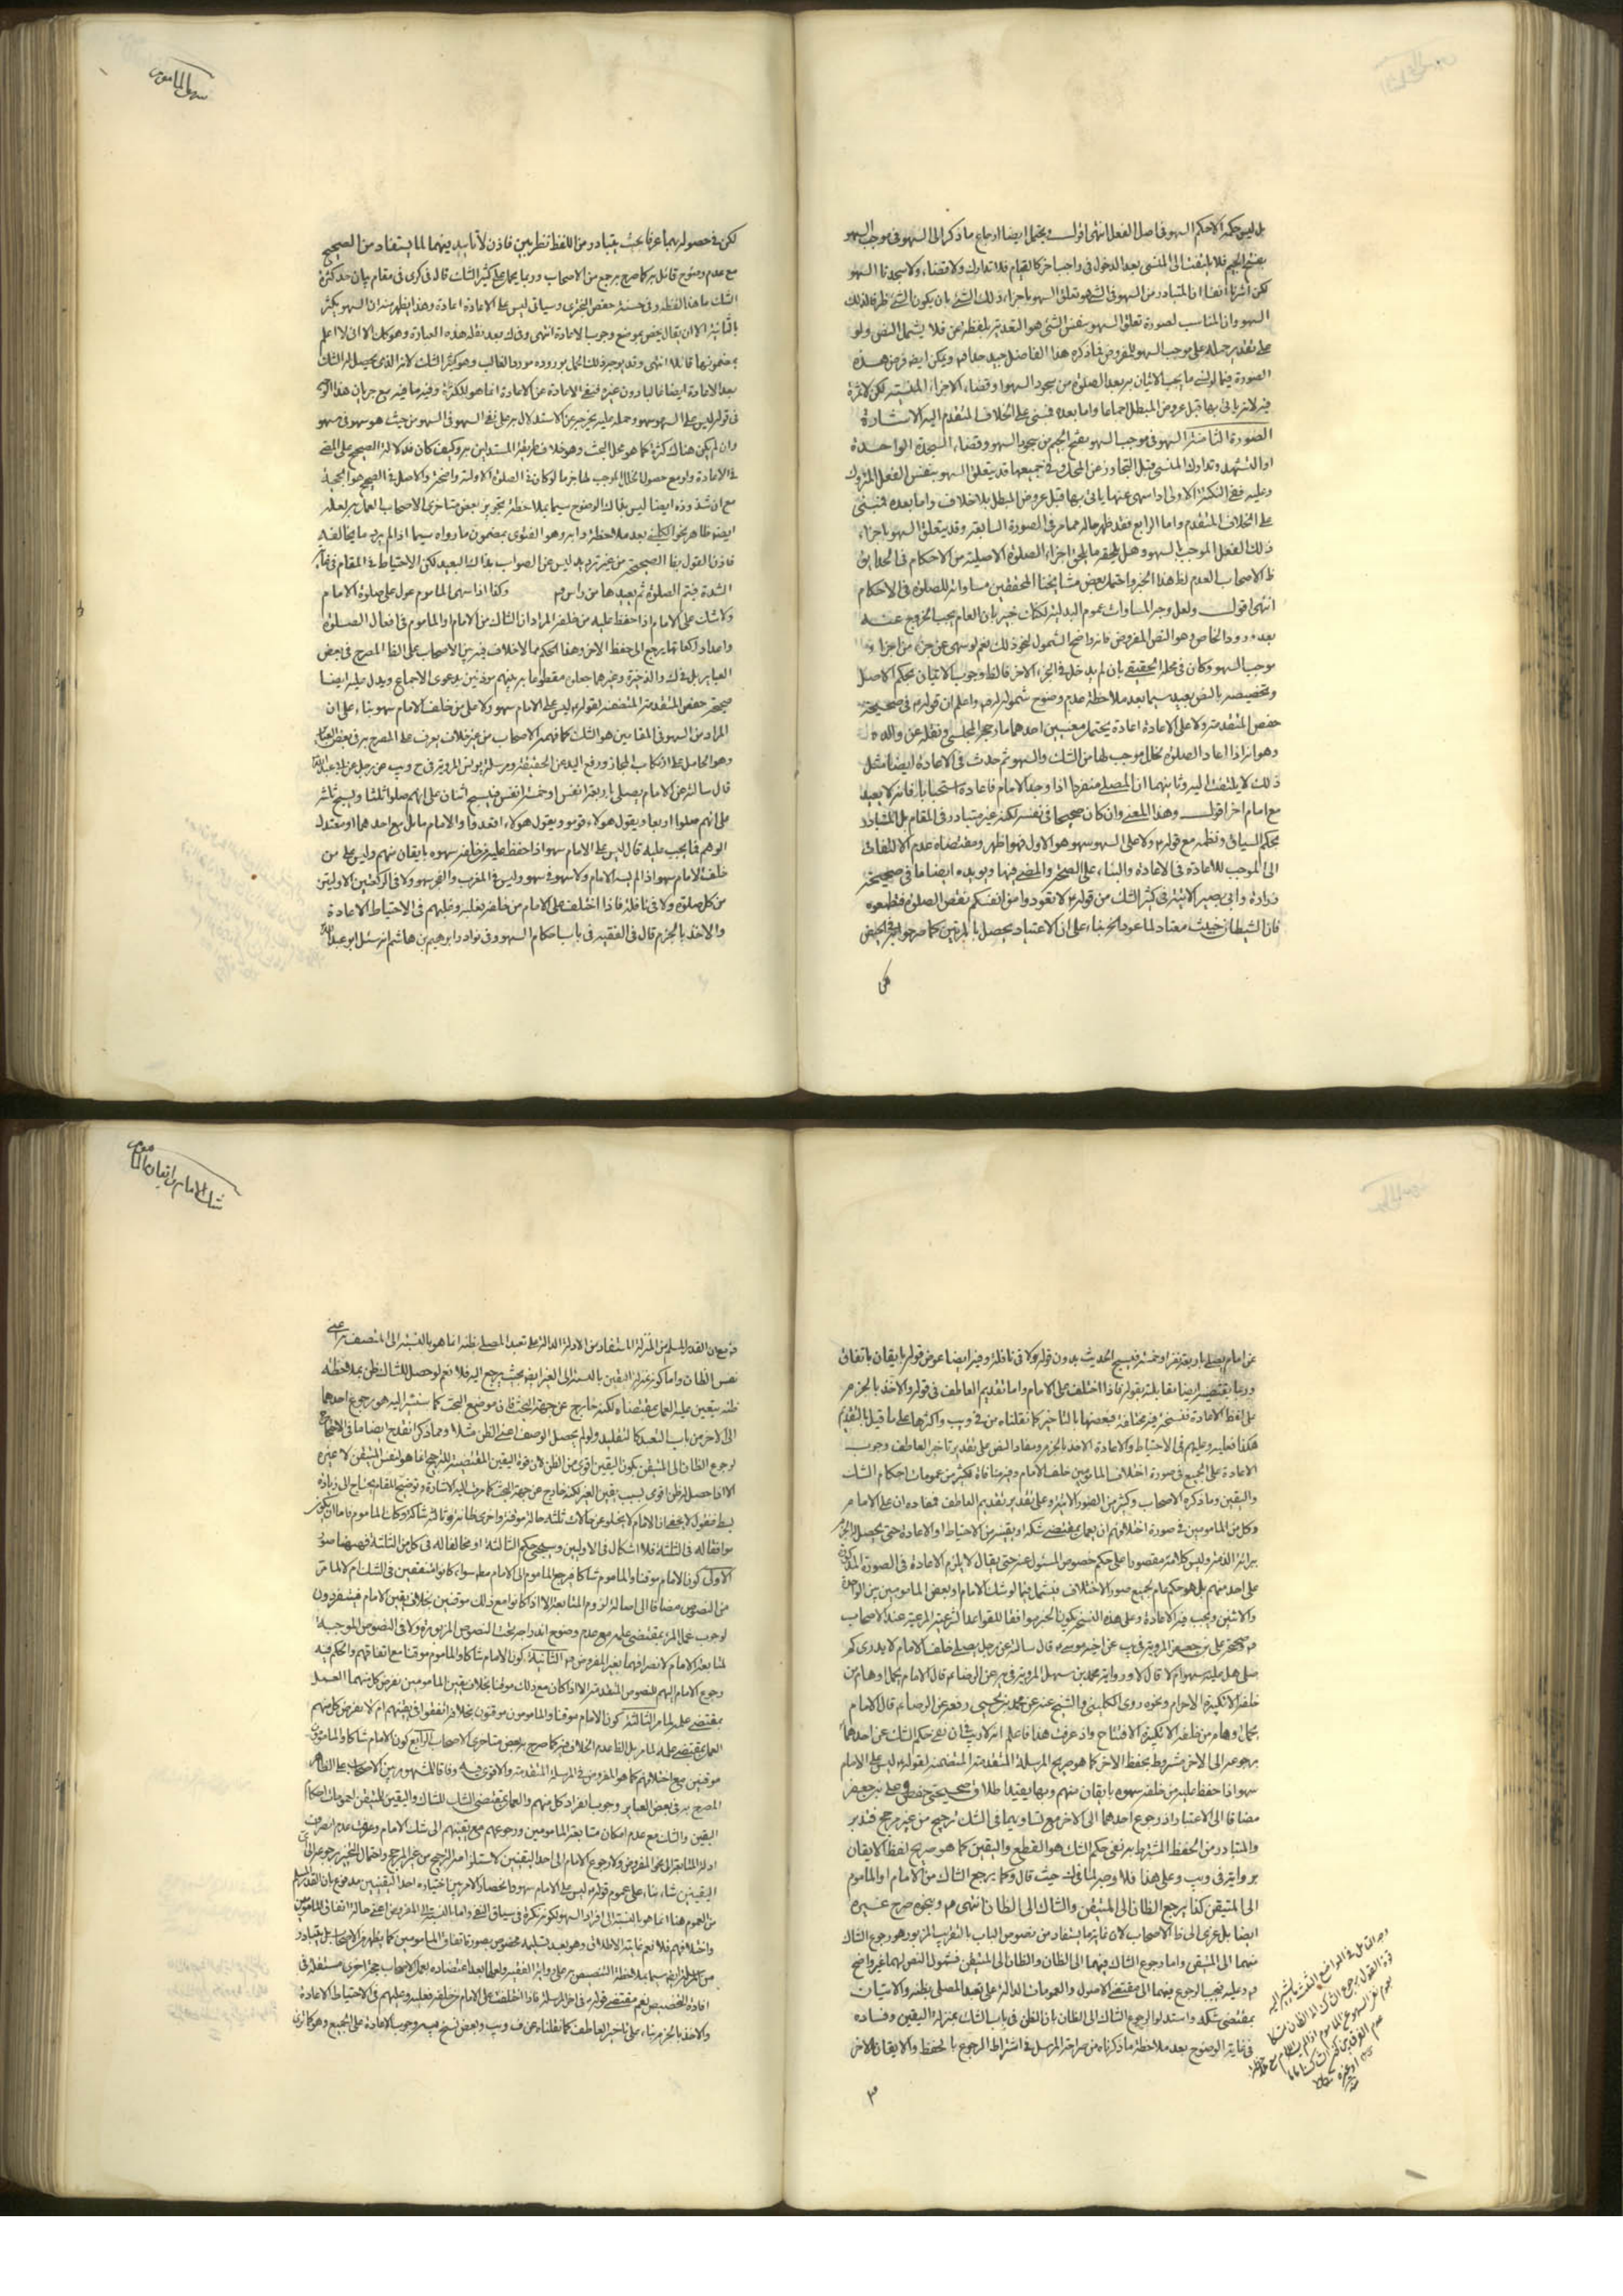 بل ليس حكمه الا حكم السهو في اصل الفعل انتهى اقول ويحتمل ايضا ارجاع ما ذكر الى السهو في موجب السهو
بفتح الجيم فلا يلتفت الى المنسى بعد الدخول في واجب اخر كالقيام فلا تدارك ولا قضاء ولا سجدتا السهو
لكن اشرنا انفا ان المتبادر من السهو في الشئ هو تعلق السهو باجزاء ذلك الشئ بان يكون الشئ ظرفا لذلك
السهو وان المناسب لصورة تعلق السهو بنفس الشئ هو التعدية بلفظة عن فلا يشمل النص ولو
على تقدير حمله على موجب السهو المفروض فما ذكره هذا الفاضل جيد جدا فيه ويمكن ايضا فرض هذه
الصورة فيما لو نسى ما يجب الاتيان به بعد الصلوة من سجود السهو او قضاء الاجزاء المنسية لكن لا ثمرة
فيه لانه ياتى بها قبل عروض المبطل اجماعا واما بعده فمبنى على الخلاف المتقدم اليه الاشارة
الصورة الثامنة السهو في موجب السهو بفتح الجيم من سجود السهو وقضاء السجدة الواحدة
او التشهد وتدارك المنسى قبل التجاوز عن المحل وفى جميعها قد يتعلق السهو بنفس الفعل المتروك
وعليه ففى الثلثة الاولى اذا سهى عنها ياتى بها قبل عروض المبطل بلا خلاف واما بعده فمبنى
على الخلاف المتقدم واما الرابع فقد ظهر حاله مما مر في الصورة السابقة وقد يتعلق السهو باجزاء
ذلك الفعل الموجب للسهو وهل يلحقه ما يلحق اجزاء الصلوة الاصلية من الاحكام في الحدايق
ظ الاصحاب العدم لظ هذا الخبر واحتمل بعض مشايخنا المحققين مساواته للصلوة في الاحكام
انتهى اقول ولعل وجه المساواة عموم البدلية لكنك خبير بان العام يجب الخروج عنه
بعد ورود الخاص وهو النص المفروض فانه واضح الشمول لنحو ذلك نعم لو سهى عن جزء من اجزاء
موجب السهو وكان في محله الحقيقى بان لم يدخل في الجزء الاخر فالظ وجوب الاتيان بحكم الاصل
وتخصيصه بالنص بعيد سيما بعد ملاحظة عدم وضوح شموله له واعلم ان قوله ع في صحيحة
حفص المتقدمة ولا على الاعادة اعادة يحتمل معنيين احدهما ما رجحه المجلسى ونقله عن والده
وهو انه اذا اعاد الصلوة لخلل موجب لها من الشك والسهو ثم حدث في الاعادة ايضا مثل
ذلك لا يلتفت اليه وثانيهما ان المصلى منفردا اذا وجد الامام فاعاده استحبابا فانه لا يعيد
مع امام اخر اقول وهذا المعنى وان كان صحيحا في نفسه لكنه غير متبادر في المقام بل المتبادر
بحكم السياق ونظمه مع قوله ع ولا على السهو سهو هو الاول فهو اظهر ومقتضاه عدم الالتفات
الى الموجب للاعادة في الاعادة والبناء على الصحة والمضى فيها ويؤيده ايضا ما في صحيحة
زرارة وابى بصير الاتية في كثير الشك من قوله ع لا تعودوا من انفسكم نقض الصلوة فتطمعوه
فان الشيطان خبيث معتاد لما عود الخبر بناء على ان الاعتياد يحصل بالمرتين كما صرحوا به في الحيض
لكن
سهو الماموم
لكن في حصوله بهما عرفا بحيث يتبادر من اللفظ نظر بين فاذن لا تأييد فيهما لما يستفاد من الصحيح
مع عدم وضوح قائل به كما صرح به جمع من الاصحاب وربما يحمل على كثير الشك قال في كرى في مقام بيان حد كثرة
الشك ما هذا لفظه وفى حسنة حفص البخترى وسياتى ليس على الاعادة اعادة وهذا يظهر منه ان السهو يكثر
بالثانية الا ان يقال يخص بموضع وجوب الاعادة انتهى وفى ك بعد نقله هذه العبارة وهو كك الا انى لا اعلم
بمضمونها قائلا انتهى وقد يوجه ذلك الحمل بوروده مورد الغالب وهو كثير الشك لانه الذى يحصل له الشك
بعد الاعادة ايضا غالبا دون غيره فنفى الاعادة عن الاعادة انما هو للكثرة وفيه ما فيه مع جريان هذا
في قوله ليس على السهو سهو وحمله عليه يخرجه عن الاستدلال به على نفى السهو في السهو من حيث هو سهو في سهو
وان لم يكن هناك كثرة كما هو محل البحث وهو خلاف طريقة المستدلين به وكيف كان فدلالة الصحيح على المضى
في الاعادة ولو مع حصول الخلل الموجب لها جزما لو كان في الصلوة الاولى واضحة والاصل في الصحيح هو الحجية
مع ان شذوذه ايضا ليس بذاك الوضوح سيما بملاحظة تجويز بعض متاخرى الاصحاب العمل به لعله
ايضا ظاهر نحو الكلينى بعد ملاحظة دابه وهو الفتوى بمضمون ما رواه سيما اذا لم يرد ما يخالفه
فاذن القول بها الصحيحة من غير ترديد ليس عن الصواب بذاك البعيد لكن الاحتياط في المقام في غاية
الشدة فيتم الصلوة ثم يعيدها من راس وكذا اذا سهى الماموم عول على صلوة الامام
ولا شك على الامام اذا حفظ عليه من خلفه المراد ان الشاك من الامام والماموم في افعال الصلوة
واعداد ركعاتها يرجع الى حفظ الاخر وهذا الحكم مما لا خلاف فيه بين الاصحاب على الظا المصرح في بعض
العباير بل في ك والذخيرة وغيرهما جعلن مقطوعا به بينهم مؤذنين بدعوى الاجماع ويدل عليه ايضا
صحيحة حفص المتقدمة المتضمنة لقوله ع ليس على الامام سهو ولا على من خلف الامام سهو بناء على ان
المراد من السهو في المقامين هو الشك كما فهمه الاصحاب من غير خلاف يعرف على المصرح به في بعض العبائر
قال سالته عن الامام يصلى باربعة انفس او خمسة انفس فيسبح اثنان على انهم صلوا ثلثا ويسبح ثلثة
على انهم صلوا اربعا ويقول هولاء قوموا ويقول هولاء اقعدوا والامام مايل مع احدهما او معتدل
الوهم فما يجب عليه قال ليس على الامام سهو اذا حفظ عليه من خلفه سهوه بايقان منهم وليس على من
خلف الامام سهو اذا لم يسه الامام ولا سهو في سهو وليس في المغرب والفجر سهو ولا في الركعتين الاوليين
من كل صلوة ولا في نافلة فاذا اختلف على الامام من خلفه فعليه وعليهم في الاحتياط الاعادة
والاخذ بالجزم قال في الفقيه في باب احكام السهو وفى نوادر ابرهيم بن هاشم انه سئل ابو عبدالله
عن امام يصلى باربعة نفر او خمسة فيسبح الحديث بدون قوله ولا في نافلة وفيه ايضا عوض قوله بايقان باتفاق
وربما يقتضيه ايضا مقابلته بقوله فاذا اختلف على الامام واما تقديم العاطف في قوله والاخذ بالجزم
على لفظ الاعادة فنسخه فيه مختلفة فبعضها بالتاخير كما نقلناه من في ويب واكثرها على ما قيل بالتقديم
هكذا فعليه وعليهم في الاحتياط والاعادة الاخذ بالجزم ومفاد النص على تقدير تاخير العاطف وجوب
الاعادة على الجميع في صورة اختلاف المامومين خلف الامام وفيه منافاة لكثير من عمومات احكام الشك
واليقين وما ذكره الاصحاب في كثير من الصور الاتية وعلى تقدير تقديم العاطف فمفاده ان على الامام
وكل من المامومين في صورة اختلافهم ان يعمل بمقتضى شكه او يقينه من الاحتياط او الاعادة حتى يحصل له الجزم
ببرائة الذمة وليس كلامه مقصورا على حكم خصوص المسئول عنه حتى يقال لا يلزم الاعادة في الصورة المذكورة
على احد منهم بل هو حكم عام لجميع صور الاختلاف فيشمل ما لو شك الامام او بعض المامومين بين الواحدة
والاثنين ويجب فيه الاعادة وعلى هذه النسخ يكون الخبر موافقا للقواعد الشرعية المرعية عند الاصحاب
صحيحة على بن جعفر المروية في يب عن اخيه موسى ع قال سالته عن رجل يصلى خلف الامام لا يدرى كم
صلى هل عليه سهو ام لا قال لا ورواية محمد بن سهل المروية في يه عن الرضا ع قال الامام يحمل اوهام من
خلفه الا تكبيرة الاحرام ونحوه روى الكلينى والشيخ عنه عن محمد بن يحيى رفعه عن الرضا ع قال الامام
يحمل اوهام من خلفه الا تكبيرة الافتتاح واذ عرفت هذا فاعلم انه لا ريب في ان نفى حكم الشك عن احدهما
برجوعه الى الاخر مشروط بحفظ الاخر كما هو صريح المرسلة المتقدمة المتضمنة لقوله ع ليس على الامام
سهو اذا حفظ عليه من خلفه سهوه بايقان منهم وبها يقيد اطلاق صحيحتى حفص وعلى بن جعفر
مضافا الى الاعتبار اذ رجوع احدهما الى الاخر مع تساويهما في الشك ترجيح من غير مرجح فتدبر
والمتبادر من الحفظ المشترط به نفى حكم الشك هو القطع واليقين كما هو صريح لفظ الايقان
برواية في ويب وعلى هذا فلا وجه لما في ك حيث قال وكما يرجع الشاك من الامام والماموم
الى المتيقن كذا يرجع الظان الى المتيقن والشاك الى الظان انتهى وبنحوه صرح غيره
ايضا بل عزى الى ظ الاصحاب لان غاية ما يستفاد من نصوص الباب بالتقريب المزبور هو رجوع الشاك
منهما الى المتيقن واما رجوع الشاك فيهما الى الظان والظان الى المتيقن فشمول النص لهما غير واضح
وعليه فيجب الرجوع فيهما الى مقتضى الاصول والعمومات الدالة على تعبد المصلى بظنه والاتيان
بمقتضى شكه واستدلوا لرجوع الشاك الى الظان بان الظن في باب الشك بمنزلة اليقين وفساده
في غاية الوضوح بعد ملاحظة ما ذكرناه من صراحة المرسل في اشتراط الرجوع بالحفظ والايقان الاخر
شك الامام وايقان الماموم
نفس الظان واما كونه بمنزلة اليقين بالنسبة الى الغير ايضا بحيث يرجع اليه فلا نعم لو حصل للشاك ظن بملاحظة
ظنه يتعين عليه العمل بمقتضاه لكنه خارج عن جهة البحث فان موضع البحث كما سنشير اليه هو رجوع احدهما
الى الاخر من باب التعبد كالتقليد ولو لم يحصل الوصف اعنى الظن مثلا ومما ذكر انقدح ايضا ما في الاحتجاج
لرجوع الظان الى المتيقن بكون اليقين اقوى من الظن لان قوة اليقين المقتضية للترجيح انما هو لنفس المتيقن لا غيره
الا اذا حصل له ظن اقوى بسبب يقين الغير لكنه خارج عن جهة البحث كما مرت اليه الاشارة وتوضيح المقام يحتاج الى زيادة
بسط فنقول لا يخفى ان الامام لا يخلو عن حالات ثلثة حالة موقنة واخرى ظانة وثالثة شاكة وكك الماموم فاما ان يكون
موافقا له في الثلثة فلا اشكال في الاوليين وسيجئ حكم الثالثة او مخالفا له في كل من الثلثة فهيهنا صور
الاولى كون الامام موقنا والماموم شاكا فيرجع الماموم الى الامام مطلقا سواء كانوا متفقين في الشك ام لا لما مر
من النصوص مضافا الى اصالة لزوم المتابعة الا اذا كانوا مع ذلك موقنين بخلاف يقين الامام فينفردون
لوجوب عمل المرء بمقتضى علمه مع عدم وضوح اندراجه تحت النصوص المزبورة ولا في النصوص الموجبة
لمتابعة الامام لانصرافها بغير المفروض الثانية كون الامام شاكا والماموم موقنا مع اتفاقهم والحكم فيه
رجوع الامام اليهم للنصوص المتقدمة الا اذا كان مع ذلك موقنا بخلاف يقين المامومين بفرض كل منهما العمل
بمقتضى علمه لما مر الثالثة كون الامام موقنا والمامومون موقنون بخلافه اتفقوا في يقينهم ام لا بفرض كل منهم
العمل بمقتضى علمه لما مر بل الظا عدم الخلاف فيه كما صرح به بعض متاخرى الاصحاب الرابع كون الامام شاكا والمامومون
موقنين مع اختلافهم كما هو المفروض في المرسلة المتقدمة والاقوى فيه وفاقا للمشهور بين الاصحاب على الظاهر
المصرح به في بعض العباير وجوب انفراد كل منهم والعمل بمقتضى الشك للشاك واليقين للمتيقن لعمومات احكام
اليقين والشك مع عدم امكان متابعة المامومين ورجوعهم مع يقينهم الى شك الامام وعرفت عدم انصراف
ادلة المتابعة الى نحو المفروض ولا رجوع الامام الى احد اليقينين لاستلزامه الترجيح من غير المرجح واحتمال التخيير برجوعه الى اى
اليقينين شاء بناء على عموم قوله ع ليس على الامام سهو وانحصار الامر بين اختياره احد اليقينين مدفوع بان القدر المسلم
من العموم هنا انما هو بالنسبة الى افراد السهو لكونه نكرة في سياق النفى واما بالنسبة الى المفروض اعنى حالة اتفاق المامومين
واختلافهم فلا نعم غايته الاطلاق وهو بعد تسليمه مخصوص بصورة اتفاق المامومين كما يظهر من الاصحاب بل يتبادر
افادة التخصيص نعم مقتضى قوله ع في اخر المرسلة فاذا اختلف على الامام من خلفه فعليه وعليهم في الاحتياط الاعادة
والاخذ بالجزم بناء على تاخير العاطف كما نقلناه عن في ويب وبعض نسخ يه وجوب الاعادة على الجميع وهو كما ترى